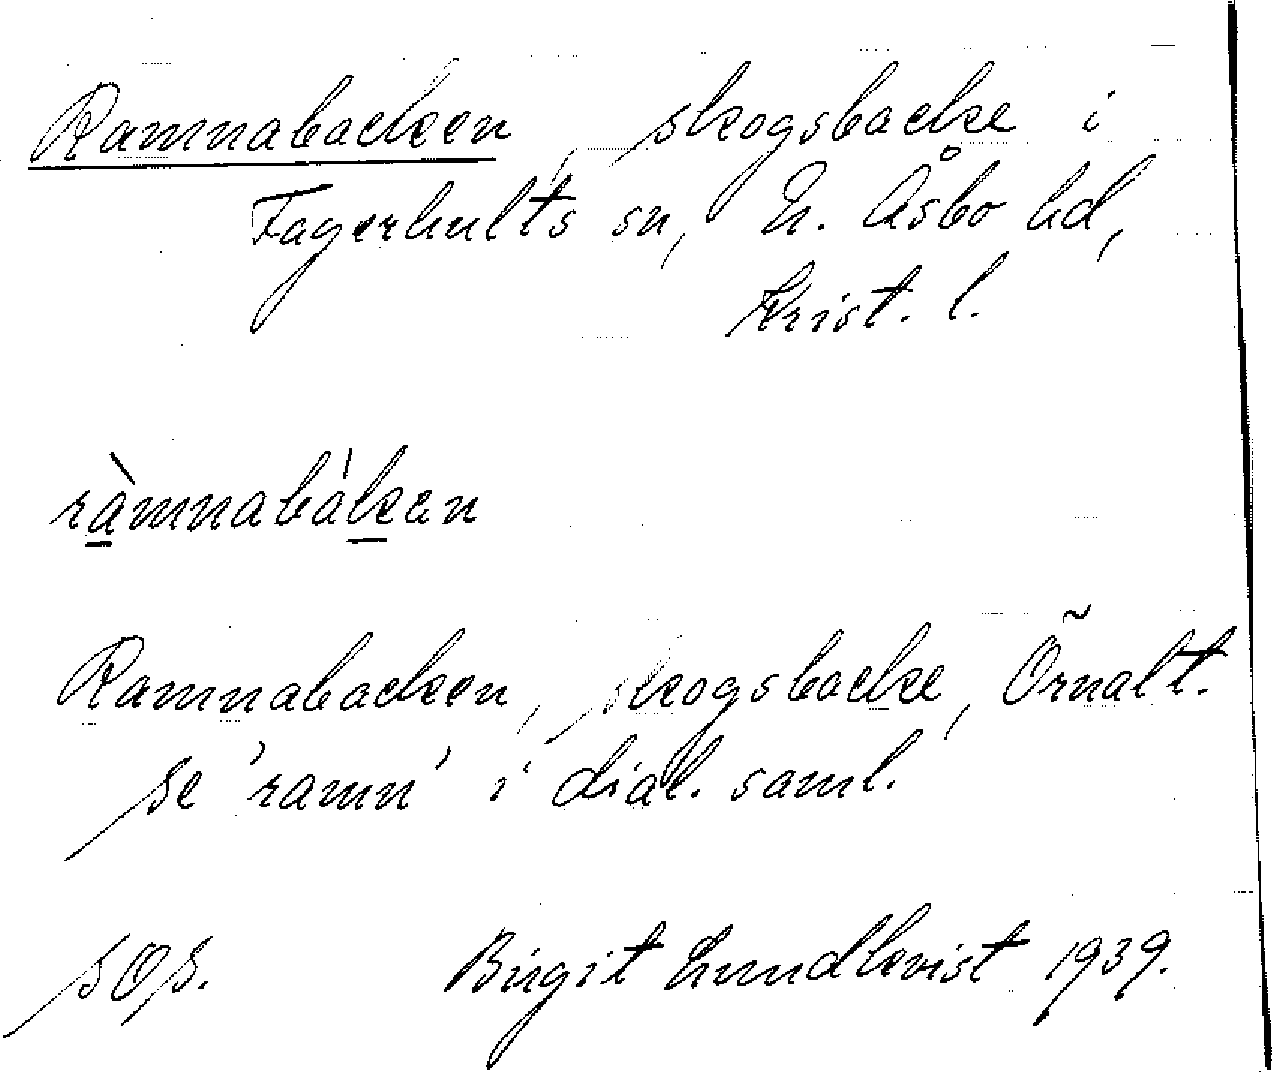 Ramnabacken, skogsbacke i
Fagerhults sn, N. Åsbo hd,
Krist. l.
ràmnabáken
Ramnabacken, skogsbacke, Örnalt.
se 'ramn' i dial. saml.
SOS. Birgit Lundkvist 1939.